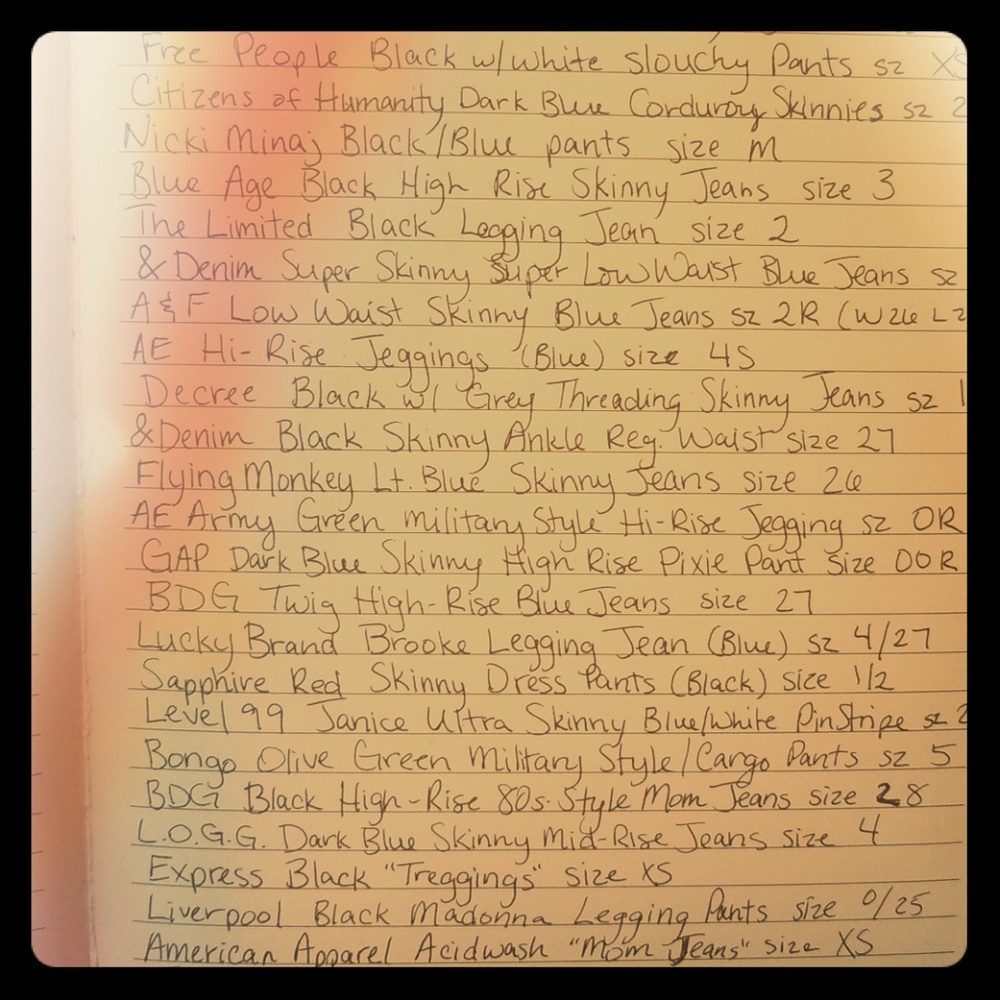 Free People Black w/white slouchy Pants sz XS
Citizens of Humanity Dark Blue Corduroy Skinnies sz 2
Nicki Minaj Black/Blue pants size M
Blue Age Black High Rise Skinny Jeans size 3
The Limited Black Legging Jean size 2
& Denim Super Skinny Super Low Waist Blue Jeans sz
A&F Low Waist Skinny Blue Jeans sz 2R (W26 L2
AE Hi-Rise Jeggings (Blue) size 4S
Decree Black w/ Grey Threading Skinny Jeans sz 1
&Denim Black Skinny Ankle Reg. Waist size 27
Flying Monkey Lt. Blue Skinny Jeans size 26
AE Army Green Military Style Hi-Rise Jegging sz OR
GAP Dark Blue Skinny High Rise Pixie Pant size OOR
BDG Twig High-Rise Blue Jeans size 27
Lucky Brand Brooke Legging Jean (Blue) sz 4/27
Sapphire Red Skinny Dress Pants (Black) size 1/2
Level 99 Janice Ultra Skinny Blue/White PinStripe sz 2
Bongo Olive Green Military Style/Cargo Pants sz 5
BDG Black High-Rise 80s Style Mom Jeans size 28
L.O.G.G. Dark Blue Skinny Mid-Rise Jeans size 4
Express Black "Treggings" size XS
Liverpool Black Madonna Legging Pants size 0/25
American Apparel Acidwash "Mom Jeans" size XS